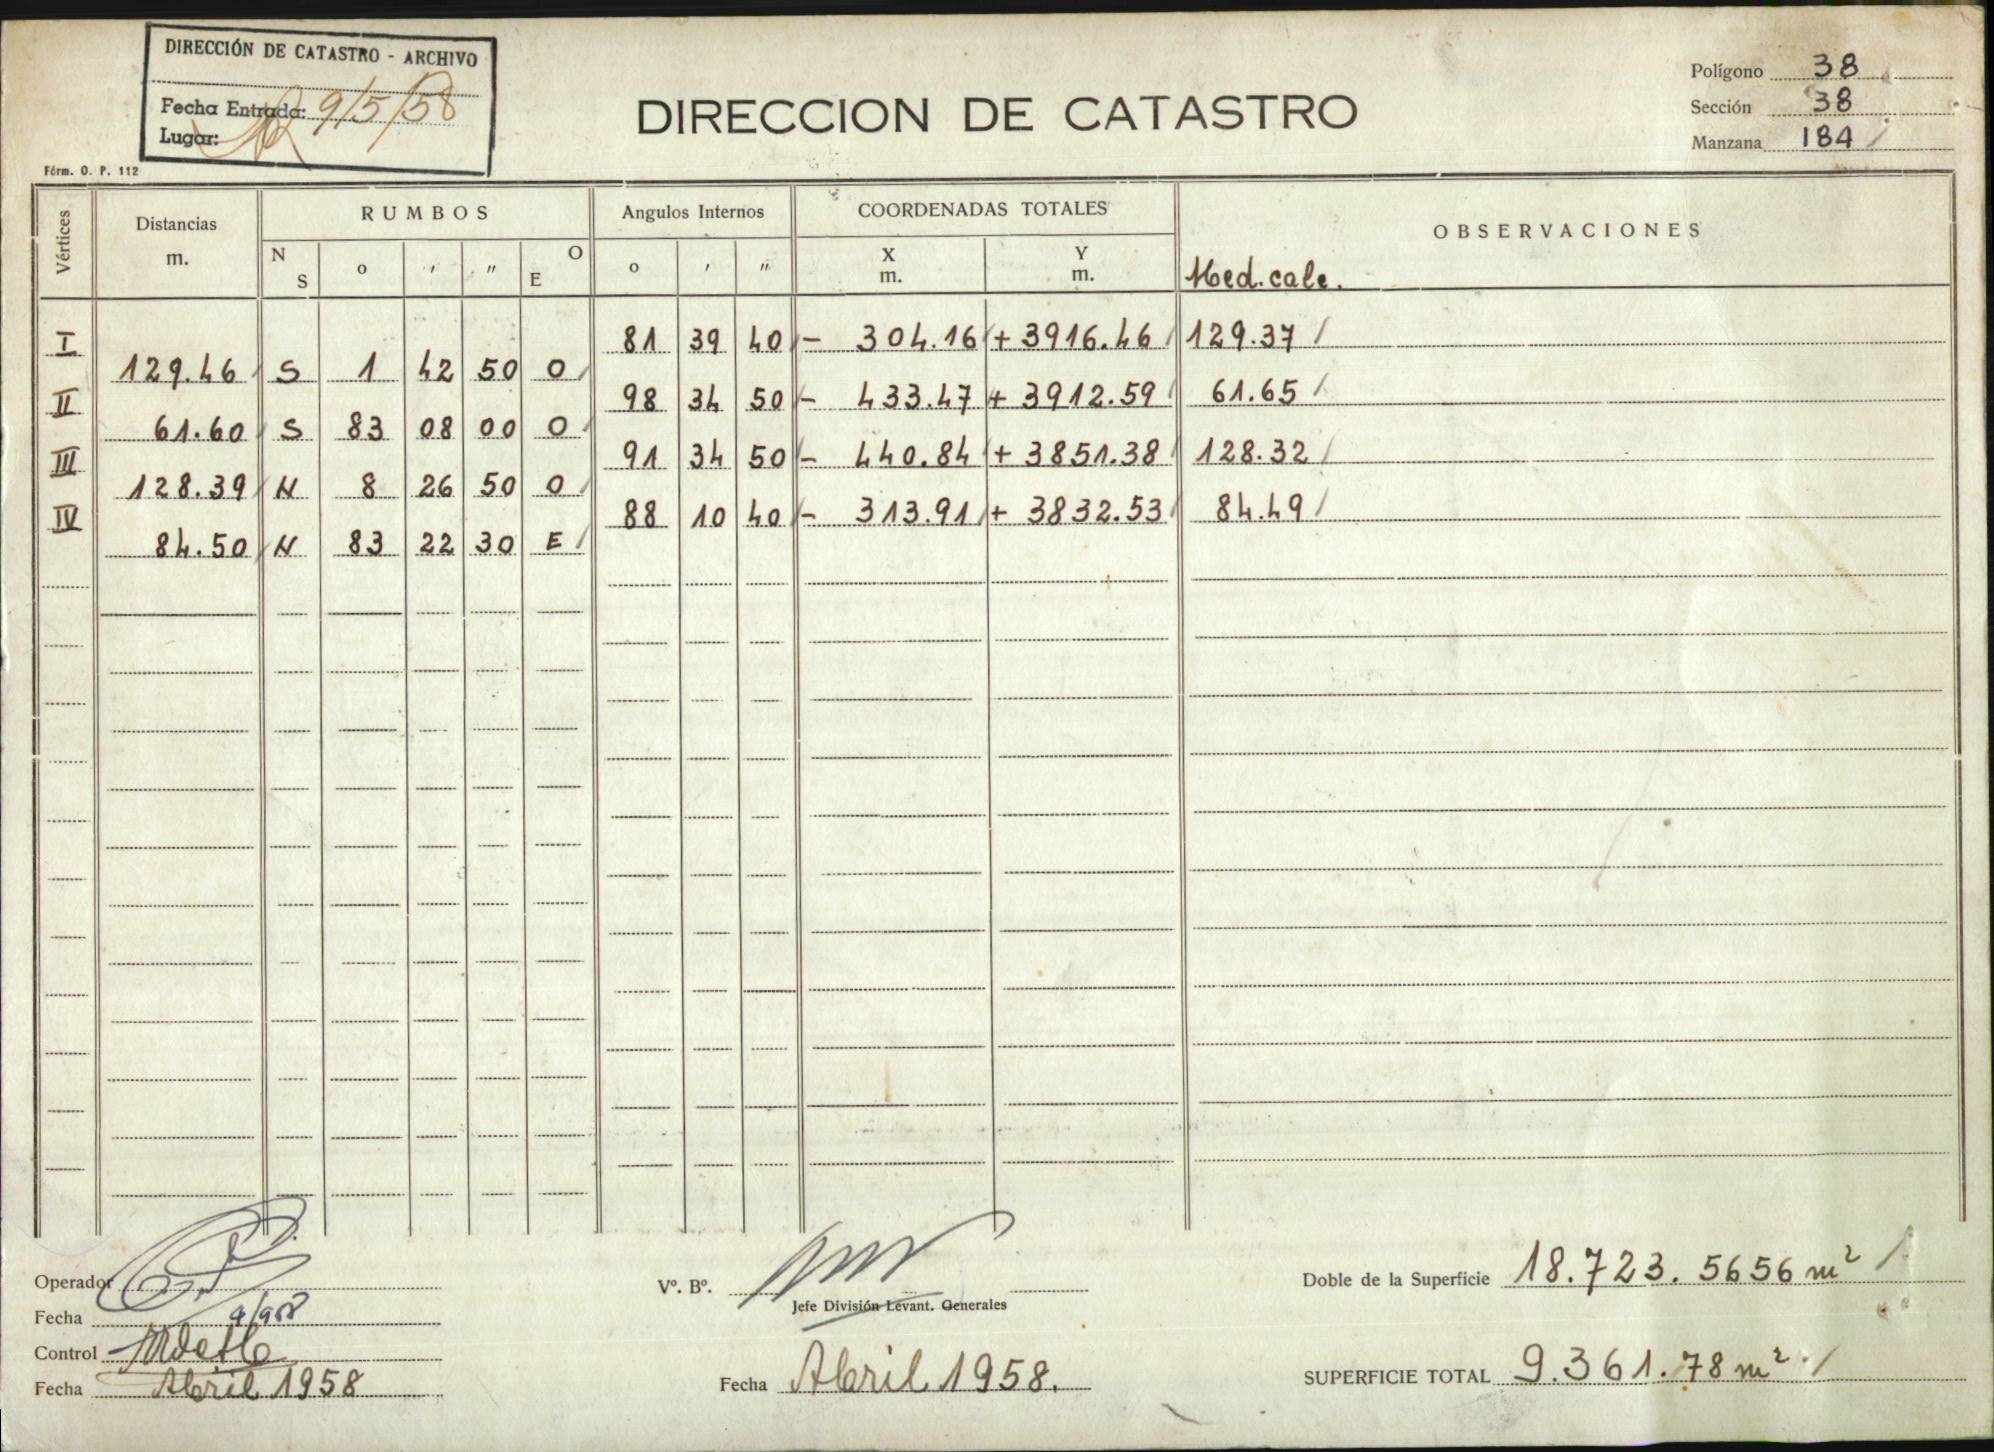 DIRECCIÓN DE CATASTRO - ARCHIVO
Fecha Entrada: 9/5/58
Lugar:
Fórm. O. P. 112
DIRECCION DE CATASTRO
Polígono 38
Sección 38
Manzana 184
Vértices Distancias m. RUMBOS Angulos Internos COORDENADAS TOTALES OBSERVACIONES
N S o ' " O E o ' " X m. Y m. Med. calc.
I 81 39 40 - 304.16 + 3916.46 129.37
129.46 S 1 42 50 O
II 98 34 50 - 433.47 + 3912.59 61.65
61.60 S 83 08 00 O
III 91 34 50 - 440.84 + 3851.38 128.32
128.39 N 8 26 50 O
IV 88 10 40 - 313.91 + 3832.53 84.49
84.50 N 83 22 30 E
Operador
Fecha
Control
Fecha Abril 1958
Vº. Bº.
Jefe División Levant. Generales
Fecha Abril 1958.
Doble de la Superficie 18.723.5656 m²
SUPERFICIE TOTAL 9.361.78 m²